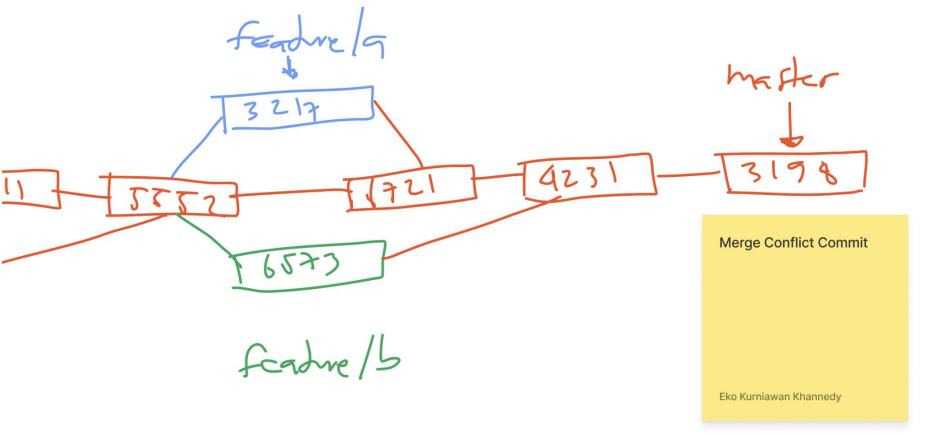 feature/a
master
3217
11
5552
5721
4231
3198
6573
feature/b
Merge Conflict Commit
Eko Kurniawan Khannedy